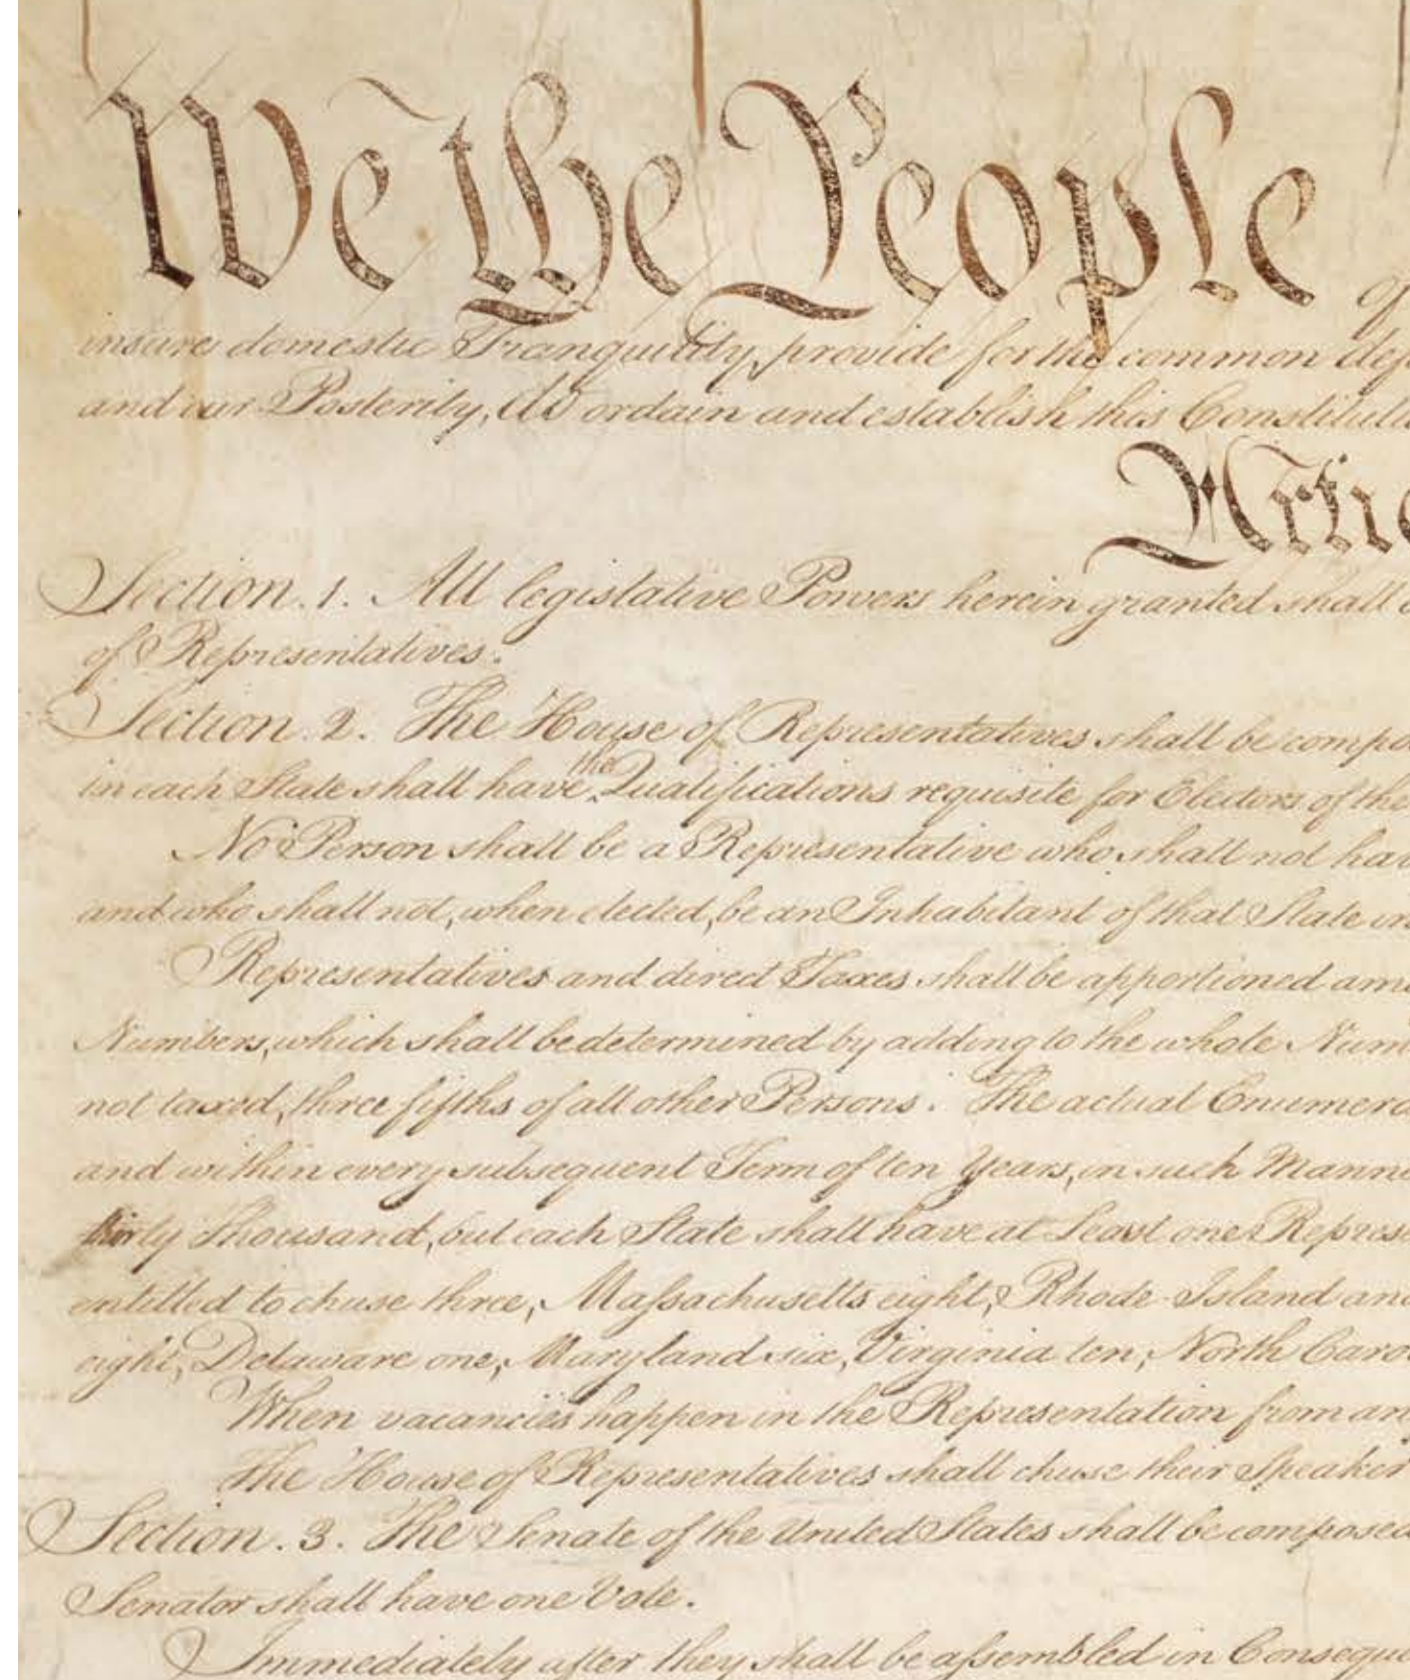 We the People of
insure domestic Tranquility, provide for the common def
and our Posterity, do ordain and establish this Constituti
Artic
Section. 1. All legislative Powers herein granted shall
of Representatives.
Section. 2. The House of Representatives shall be compo
in each State shall have the Qualifications requisite for Electors of the
No Person shall be a Representative who shall not hav
and who shall not, when elected, be an Inhabitant of that State in
Representatives and direct Taxes shall be apportioned amo
Numbers, which shall be determined by adding to the whole Num
not taxed, three fifths of all other Persons. The actual Enumera
and within every subsequent Term of ten Years, in such Manne
thirty Thousand, but each State shall have at Least one Represe
entitled to chuse three, Massachusetts eight, Rhode-Island and
eight, Delaware one, Maryland six, Virginia ten, North Caro
When vacancies happen in the Representation from an
The House of Representatives shall chuse their Speaker
Section. 3. The Senate of the United States shall be composed
Senator shall have one Vote.
Immediately after they shall be assembled in Conseque